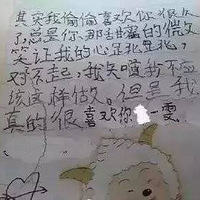 其实我偷偷喜欢你很久
了,总是你那甜甜的微
笑让我的心北里北,
对不起,我知道我不应
该这样做。但是我
真的很喜欢你 一雯